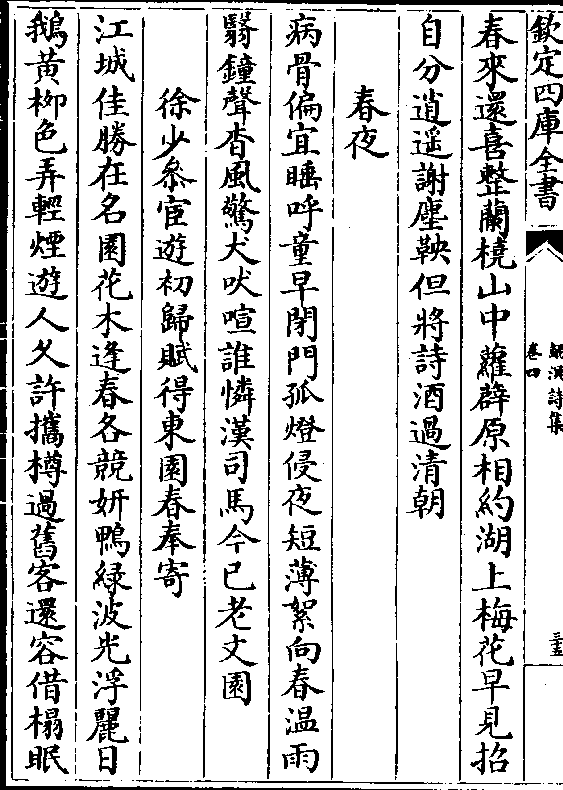 欽定四庫全書
卷四
三五
春來還喜整蘭橈山中蘿薜原相約湖上梅花早見招
自分逍遥謝塵鞅但將詩酒過清朝
春夜
病骨偏宜睡呼童早閉門孤燈侵夜短薄絮向春温雨
翳鐘聲杳風驚犬吠喧誰憐漢司馬今已老文園
徐少叅宦遊初歸賦得東園春奉寄
江城佳勝在名園花木逢春各競妍鴨綠波光浮麗日
鵝黄柳色弄輕煙遊人久許攜樽過舊客還容借榻眠